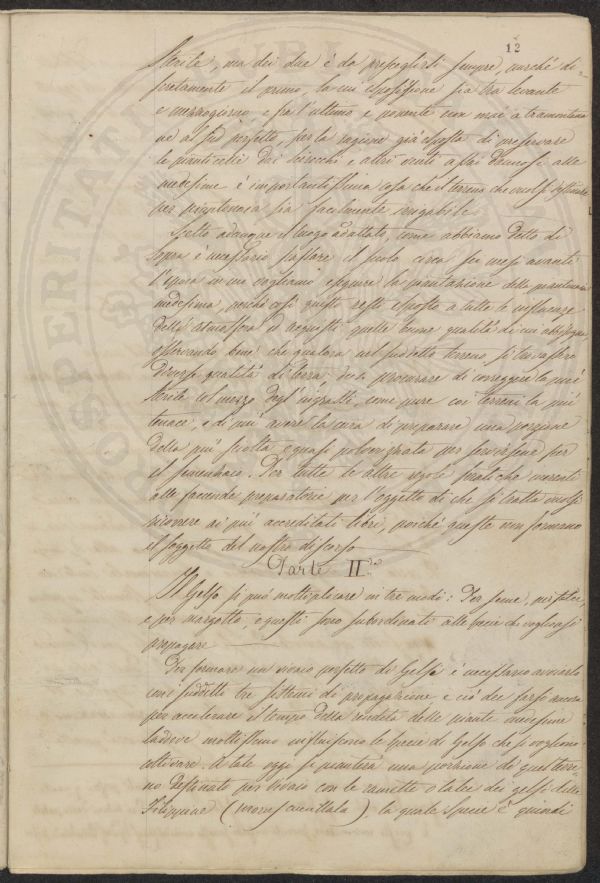 12
sterile, ma dei due è da prescegliersi sempre, purché di=
feratamente il primo, la cui esposizione sia tra levante
e mezzogiorno, e fra l'ultimo e ponente non mai a tramontana
né al più perfetto, per la ragione già esposta di preservare
le pianticelle dai scirocchi e altri venti assai dannosi alle
medesime è importantissima cosa che il terreno che vuolsi destinare
per piantonaia sia facilmente irrigabile.
Scelto adunque il luogo adattato, come abbiamo detto di
sopra è necessario lasciare il suolo circa sei mesi avanti
l'epoca in cui vogliamo eseguire la piantazione della piantonaia
medesima perché così questo resti esposto a tutte le influenze
dell'atmosfera ed acquisti quelle buone qualità di cui abbisogna
osservando bensì che qualora nel suddetto terreno si trovassero
diverse qualità di terra, devesi procurare di correggere la più
sterile col mezzo degl'ingrassi, come pure coi terreni la più
tenace, e di più avere la cura di preparare una porzione
della più sciolta e quasi polverizzata per servirsene per
il semenzaio. Per tutte le altre regole pratiche inerenti
alle faccende preparatorie per l'oggetto di che si tratta vuolsi
ricorrere ai più accreditati libri, poiché queste non formano
il soggetto del nostro discorso
Parte II.da
Il Gelso si può moltiplicare in tre modi: Per seme, per talee,
e per margotto, e questi sono subordinati alle specie che vogliansi
propagare
Per formare un vivaio perfetto di Gelsi è necessario avviarlo
coi suddetti tre sistemi di propagazione e ciò dee farsi ancora
per accelerare il tempo della rendita delle piante medesime
laddove moltissimo influiscono le specie di Gelso che si vogliono
coltivare. A tale oggi si pianterà una porzione di quel terre=
no destinato per vivaio con le ramette o talee dei gelsi delle
Filippine (morus cucullata) la quale specie è quindi